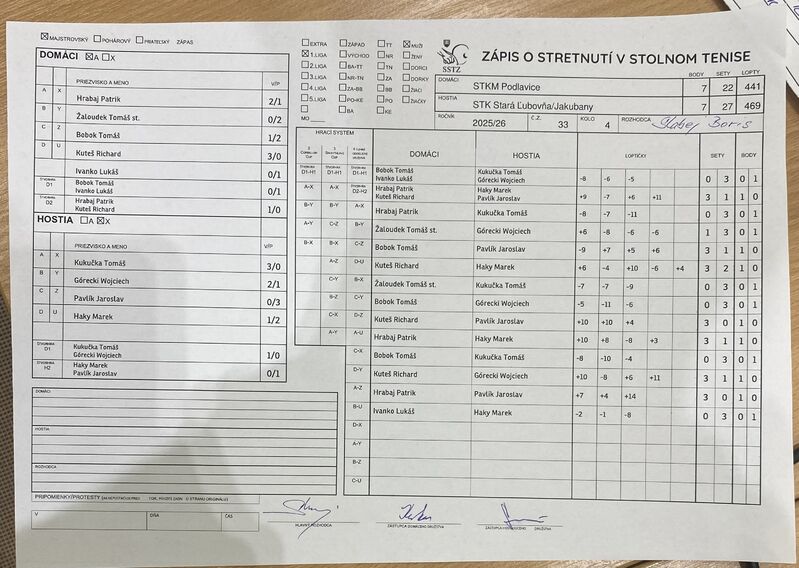 MAJSTROVSKÝ POHÁROVÝ PRIATEĽSKÝ ZÁPAS
DOMÁCI A X
PRIEZVISKO A MENO V/P
A X Hrabaj Patrik 2/1
B Y Žaloudek Tomáš st. 0/2
C Z Bobok Tomáš 1/2
D U Kuteš Richard 3/0
Ivanko Lukáš 0/1
ŠTVORHRA D1 Bobok Tomáš
Ivanko Lukáš 0/1
ŠTVORHRA D2 Hrabaj Patrik
Kuteš Richard 1/0
HOSTIA A X
PRIEZVISKO A MENO V/P
A X Kukučka Tomáš 3/0
B Y Górecki Wojciech 2/1
C Z Pavlík Jaroslav 0/3
D U Haky Marek 1/2
ŠTVORHRA D1 Kukučka Tomáš
Górecki Wojciech 1/0
ŠTVORHRA H2 Haky Marek
Pavlík Jaroslav 0/1
DOMÁCI
HOSTIA
ROZHODCA
PRIPOMIENKY/PROTESTY
V DŇA ČAS
EXTRA ZÁPAD TT MUŽI
1.LIGA VÝCHOD NR ŽENY
2.LIGA BA-TT TN DORCI
3.LIGA NR-TN ZA DORKY
4.LIGA ZA-BB BB ŽIACI
5.LIGA PO-KE PO ŽIAČKY
BA KE
MO
SSTZ
ZÁPIS O STRETNUTÍ V STOLNOM TENISE
BODY SETY LOPTY
DOMÁCI STKM Podlavice 7 22 441
HOSTIA STK Stará Ľubovňa/Jakubany 7 27 469
ROČNÍK 2025/26 Č.Z. 33 KOLO 4 ROZHODCA Slabej Boris
HRACÍ SYSTÉM DOMÁCI HOSTIA LOPTIČKY SETY BODY
ŠTVORHRA D1-H1 ŠTVORHRA D1-H1 ŠTVORHRA D1-H1 Bobok Tomáš Kukučka Tomáš
Ivanko Lukáš Górecki Wojciech -8 -6 -5 0 3 0 1
A-X A-X ŠTVORHRA D2-H2 Hrabaj Patrik Haky Marek
Kuteš Richard Pavlík Jaroslav +9 -7 +6 +11 3 1 1 0
B-Y B-Y A-X Hrabaj Patrik Kukučka Tomáš -8 -7 -11 0 3 0 1
A-Y C-Z B-Y Žaloudek Tomáš st. Górecki Wojciech +6 -8 -6 -6 1 3 0 1
B-X B-X C-Z Bobok Tomáš Pavlík Jaroslav -9 +7 +5 +6 3 1 1 0
A-Z D-U Kuteš Richard Haky Marek +6 -4 +10 -6 +4 3 2 1 0
C-Y B-X Žaloudek Tomáš st. Kukučka Tomáš -7 -7 -9 0 3 0 1
B-Z C-Y Bobok Tomáš Górecki Wojciech -5 -11 -6 0 3 0 1
C-X D-Z Kuteš Richard Pavlík Jaroslav +10 +10 +4 3 0 1 0
A-Y A-U Hrabaj Patrik Haky Marek +10 +8 -8 +3 3 1 1 0
C-X Bobok Tomáš Kukučka Tomáš -8 -10 -4 0 3 0 1
D-Y Kuteš Richard Górecki Wojciech +10 -8 +6 +11 3 1 1 0
A-Z Hrabaj Patrik Pavlík Jaroslav +7 +4 +14 3 0 1 0
B-U Ivanko Lukáš Haky Marek -2 -1 -8 0 3 0 1
D-X
A-Y
B-Z
C-U
HLAVNÝ ROZHODCA ZÁSTUPCA DOMÁCEHO DRUŽSTVA DRUŽSTVA